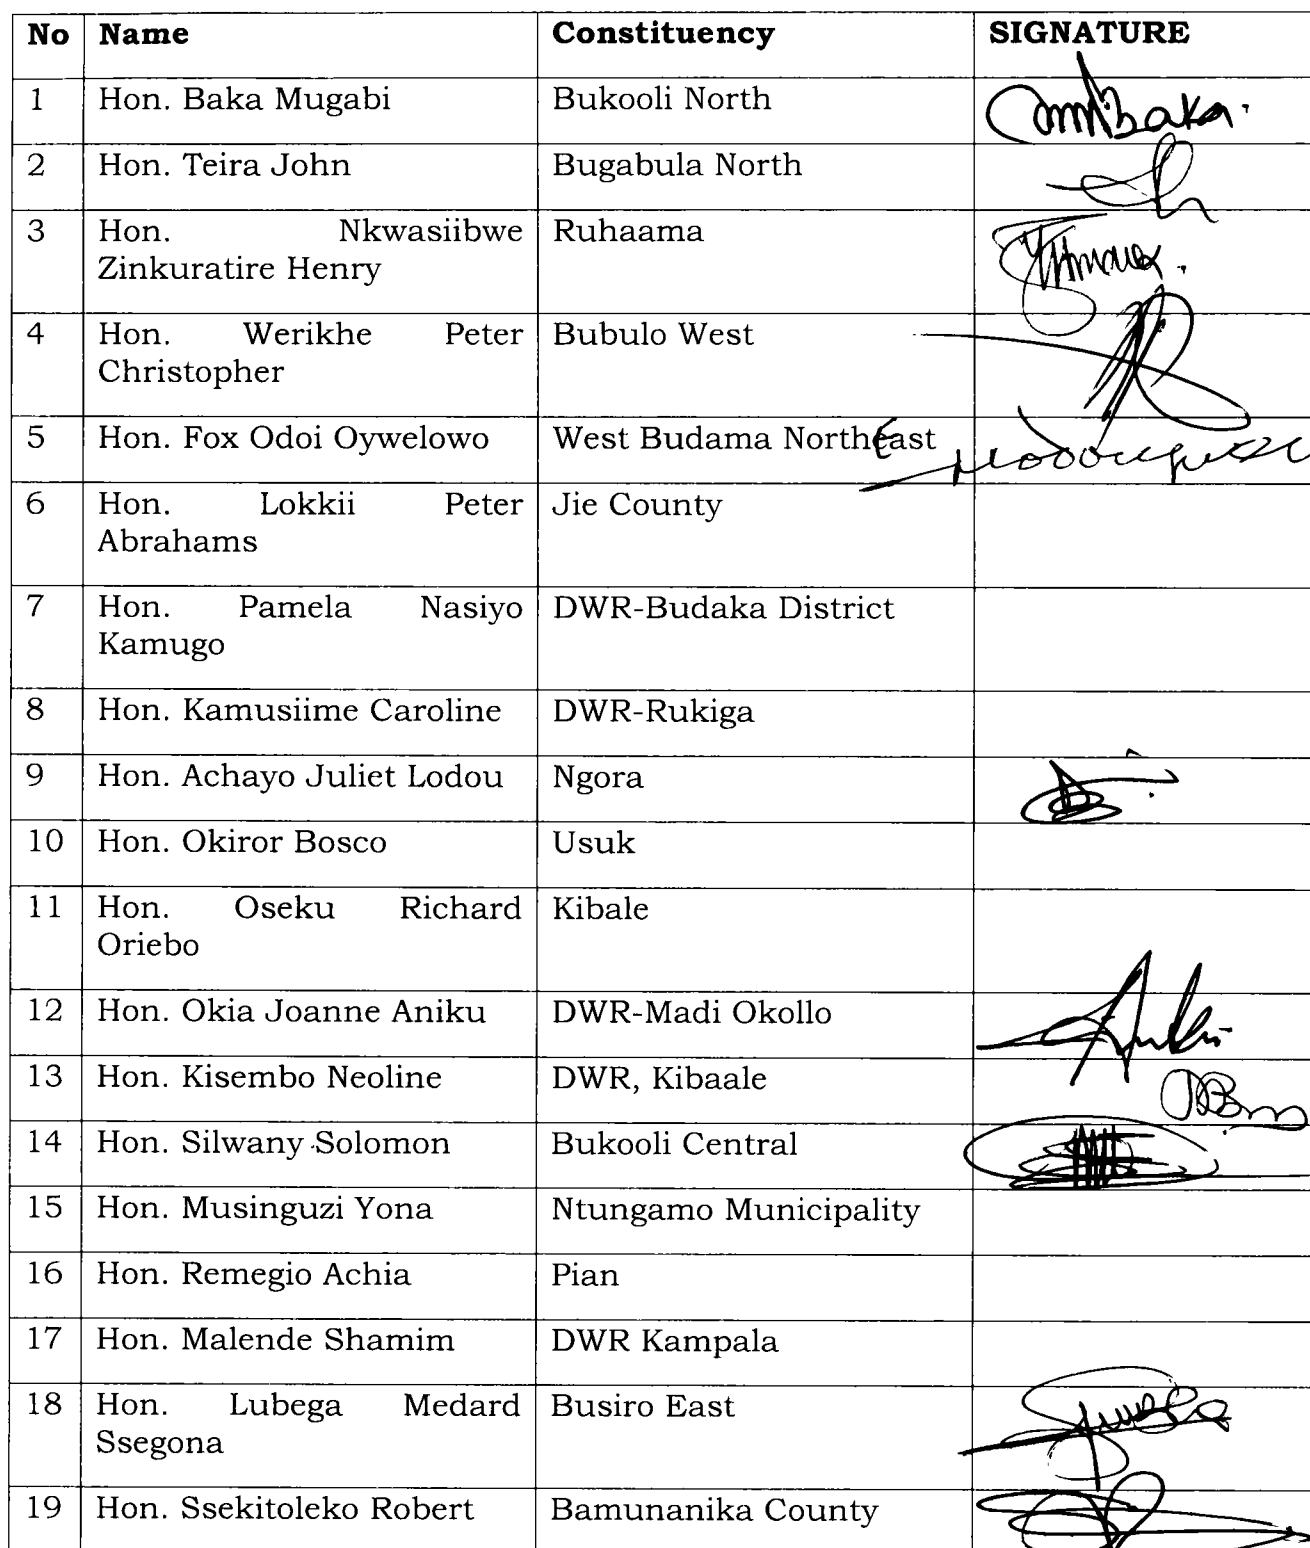 No Name Constituency SIGNATURE
1 Hon. Baka Mugabi Bukooli North
2 Hon. Teira John Bugabula North
3 Hon. Nkwasiibwe Ruhaama
Zinkuratire Henry
4 Hon. Werikhe Peter Bubulo West
Christopher
5 Hon. Fox Odoi Oywelowo West Budama Northeast
6 Hon. Lokkii Peter Jie County
Abrahams
7 Hon. Pamela Nasiyo DWR-Budaka District
Kamugo
8 Hon. Kamusiime Caroline DWR-Rukiga
9 Hon. Achayo Juliet Lodou Ngora
10 Hon. Okiror Bosco Usuk
11 Hon. Oseku Richard Kibale
Oriebo
12 Hon. Okia Joanne Aniku DWR-Madi Okollo
13 Hon. Kisembo Neoline DWR, Kibaale
14 Hon. Silwany Solomon Bukooli Central
15 Hon. Musinguzi Yona Ntungamo Municipality
16 Hon. Remegio Achia Pian
17 Hon. Malende Shamim DWR Kampala
18 Hon. Lubega Medard Busiro East
Ssegona
19 Hon. Ssekitoleko Robert Bamunanika County